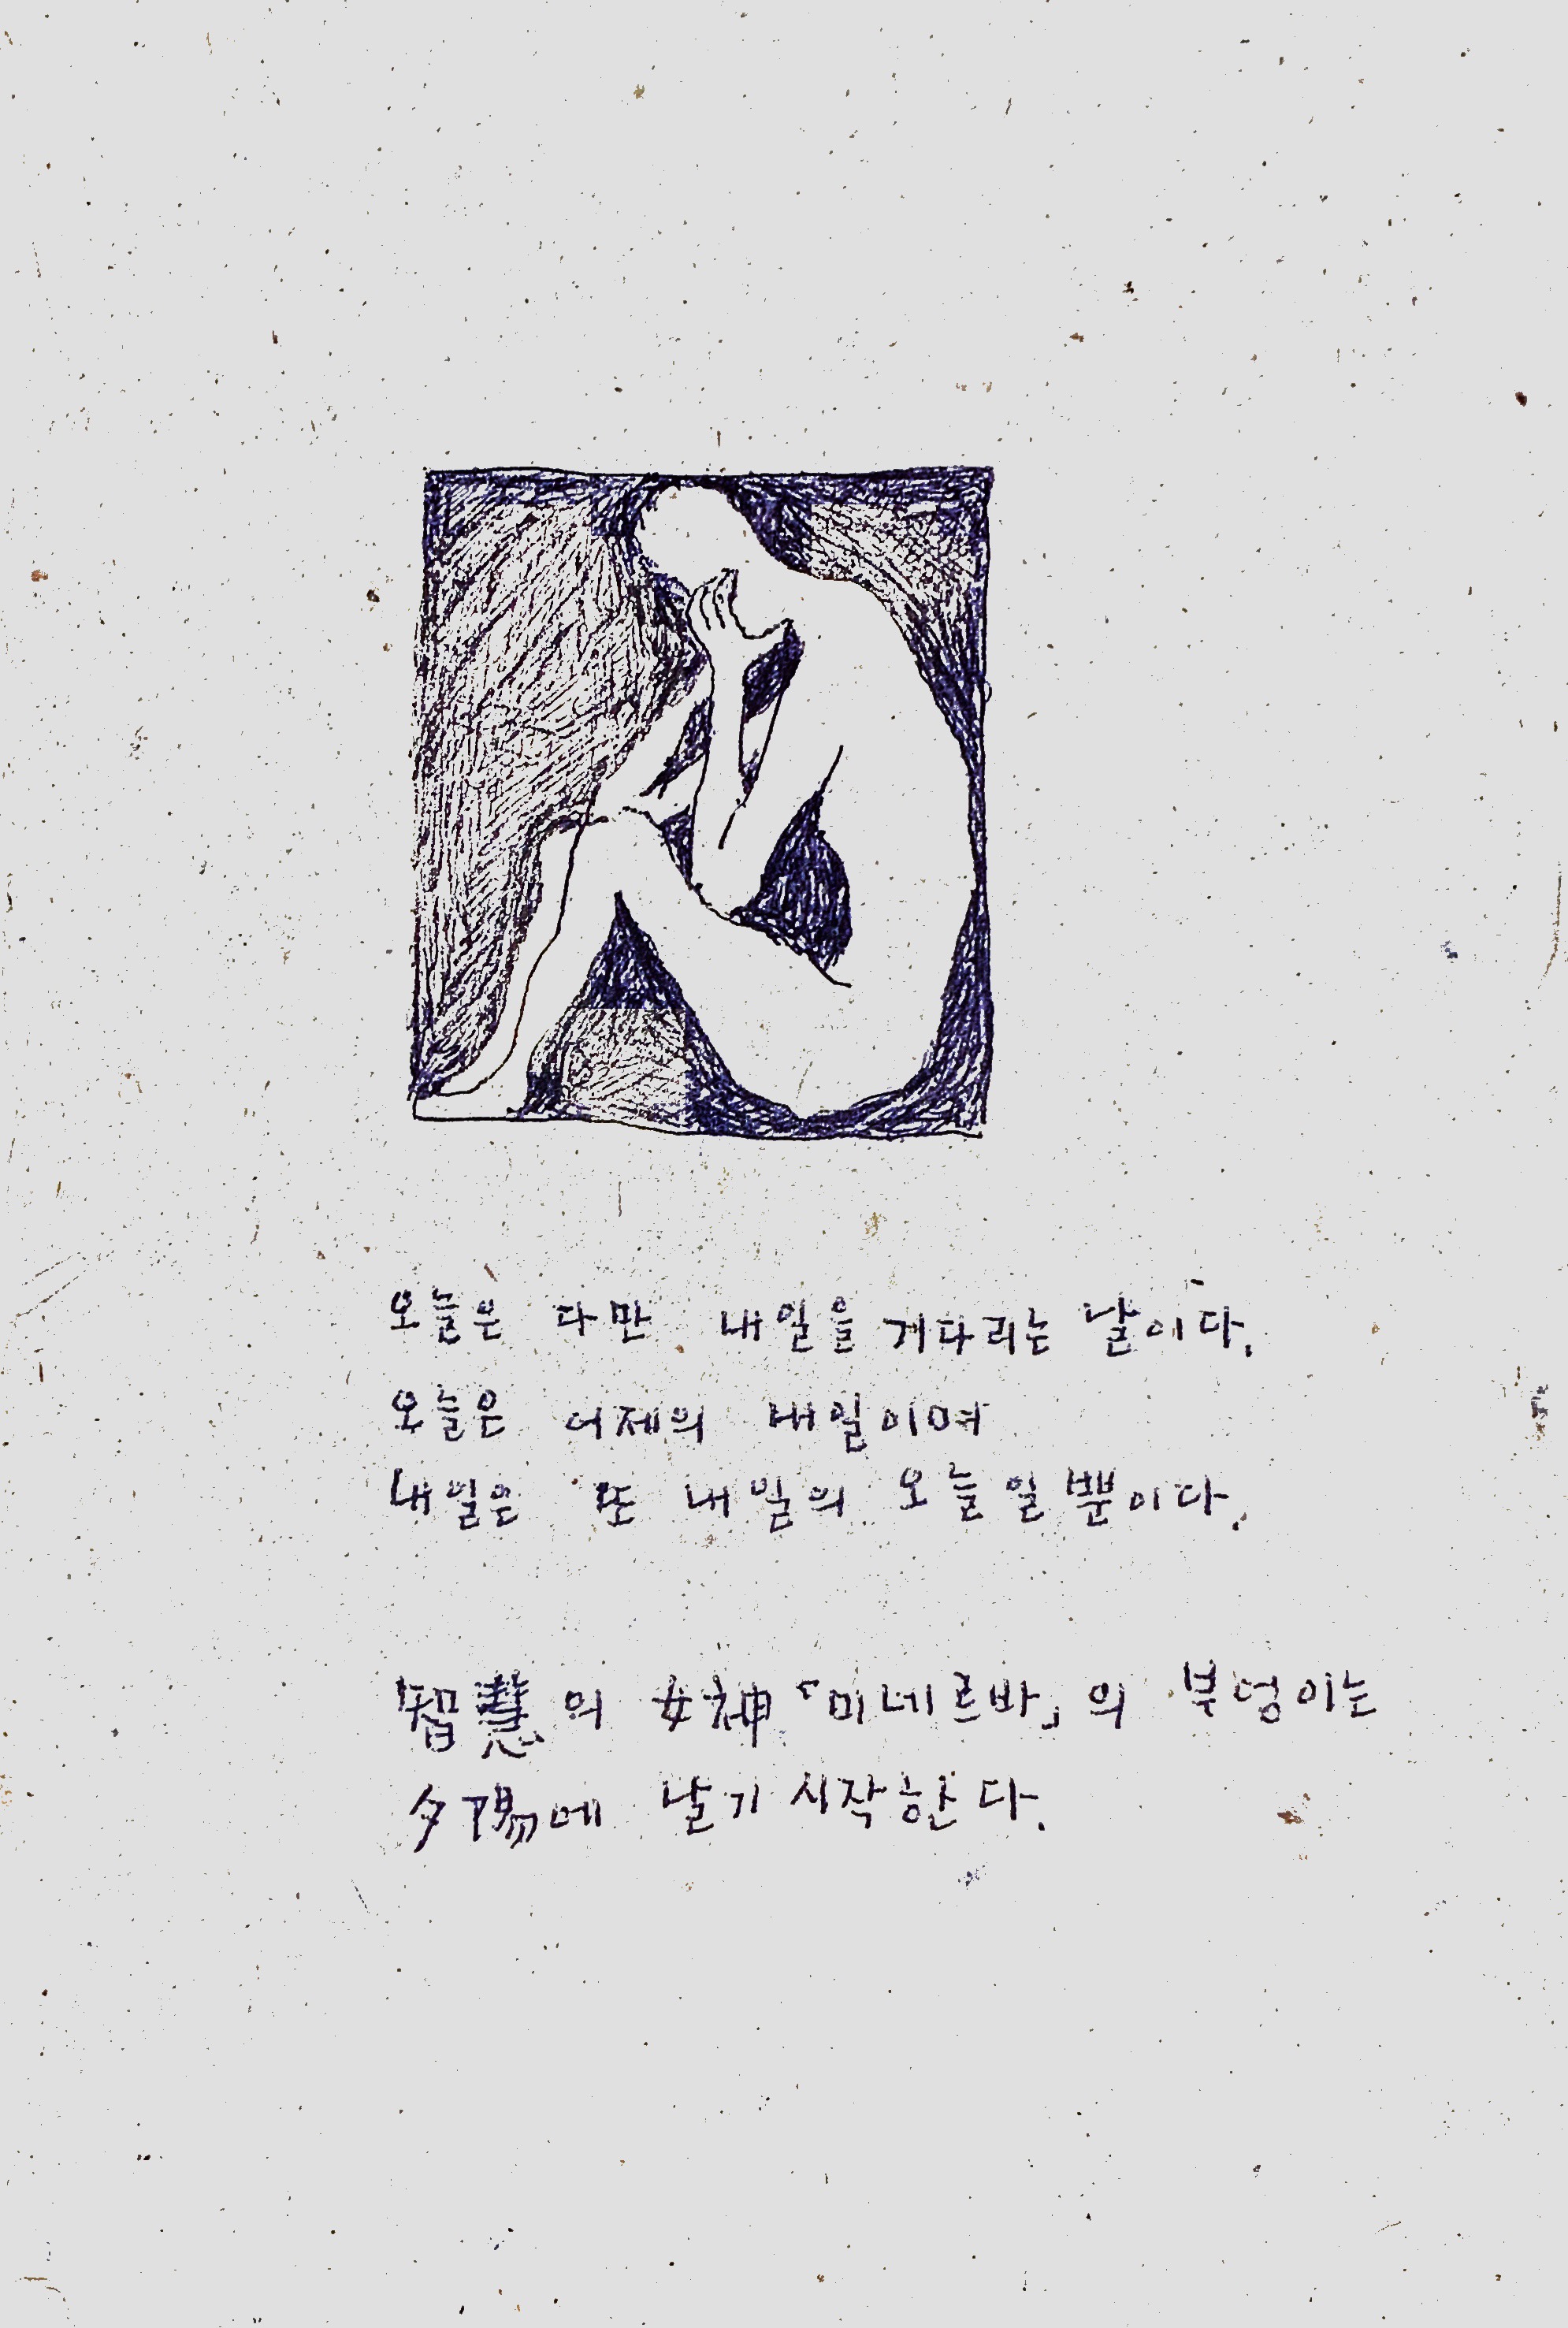 오늘은 다만 내일을 기다리는 날이다.
오늘은 어제의 내일이며
내일은 또 내일의 오늘일뿐이다.
智慧의 女神「미네르바」의 부덩이는
夕陽에 날기 시작한다.